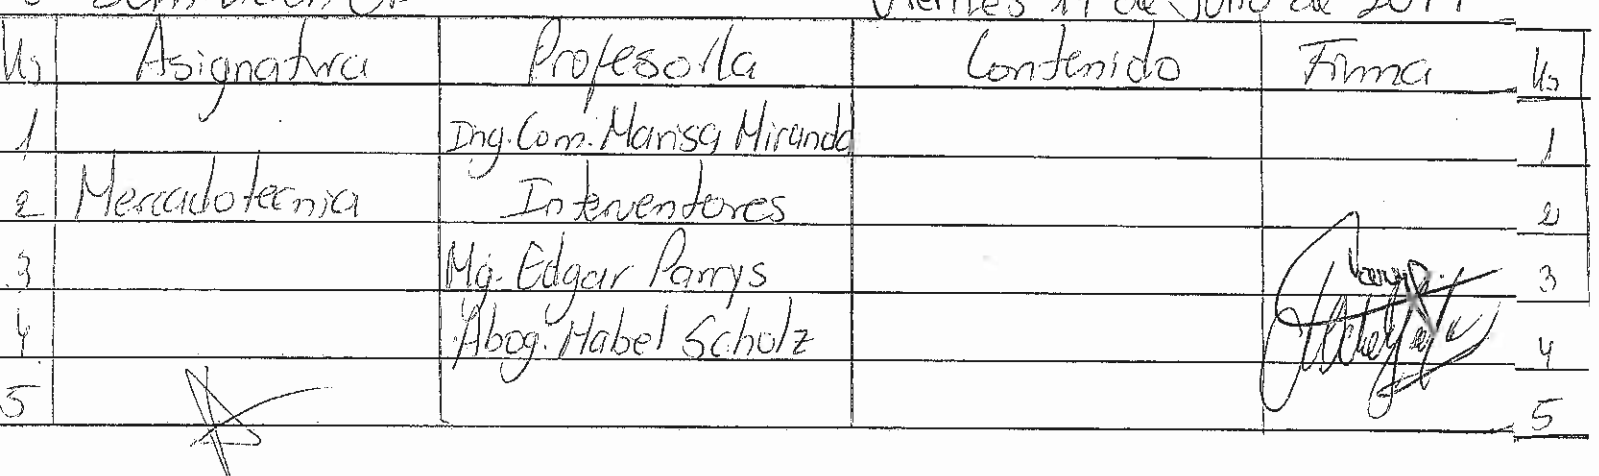 Viernes 11 de Julio de
Hs Asignatura Profesor/la Contenido Firma Hs
1 Ing. Com. Marisa Miranda 1
2 Mercadotecnia Interventores 2
3 Mg. Edgar Parrys 3
4 Abog. Mabel Scholz 4
5 5